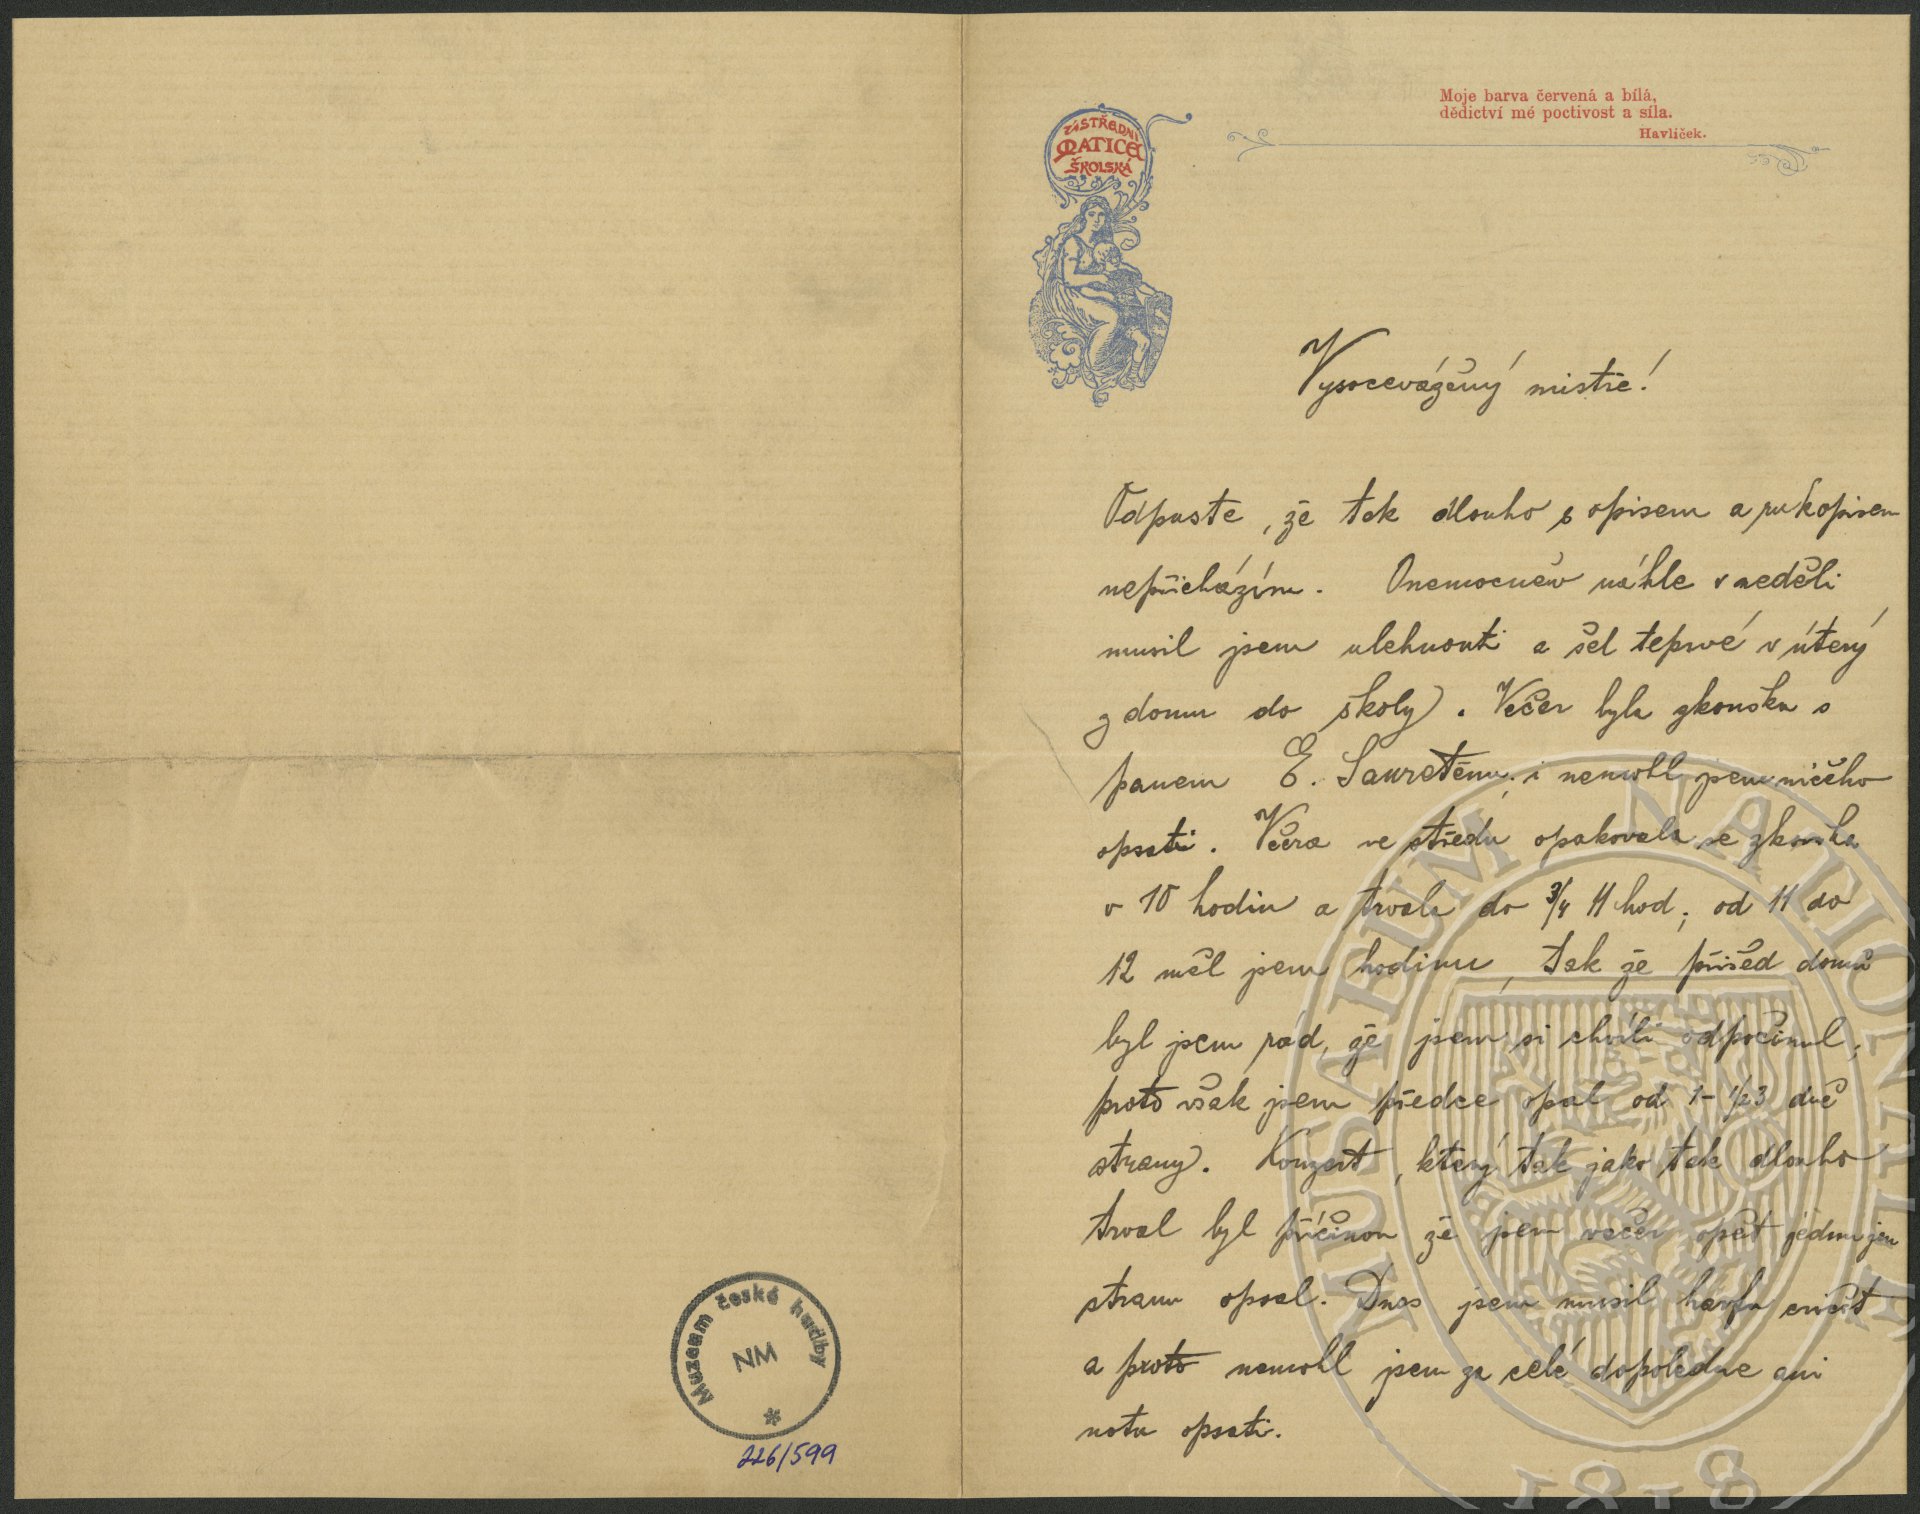 Moje barva červená a bílá,
dědictví mé poctivost a síla.
Havlíček.
ÚSTŘEDNÍ
MATICE
ŠKOLSKÁ
Vysocevážený mistře!
Odpuste, že tak dlouho s opisem a rukopisem
nepřicházím. Onemocněv náhle v neděli
musil jsem ulehnouti a šel teprvé v úterý
z domu do školy. Večer byla zkouška s
panem E. Sauretem, i nemohl jsem ničeho
opsati. Včera ve středu opakovala se zkouška
v 10 hodin a trvala do 3/4 11 hod; od 11 do
12 měl jsem hodinu, tak že přišed domů
byl jsem rád, že jsem si chvíli odpočinul,
proto však jsem předce opsal od 1-1/2 3 dvě
strany. Konzert, který tak jako tak dlouho
trval byl příčinou že jsem večer opět jednu jen
stranu opsal. Dnes jsem musil harfu cvičit
a proto nemohl jsem za celé dopoledne ani
notu opsati.
Muzeum české hudby
NM
*
226/599
MUSAEUM NATIONALE
1818